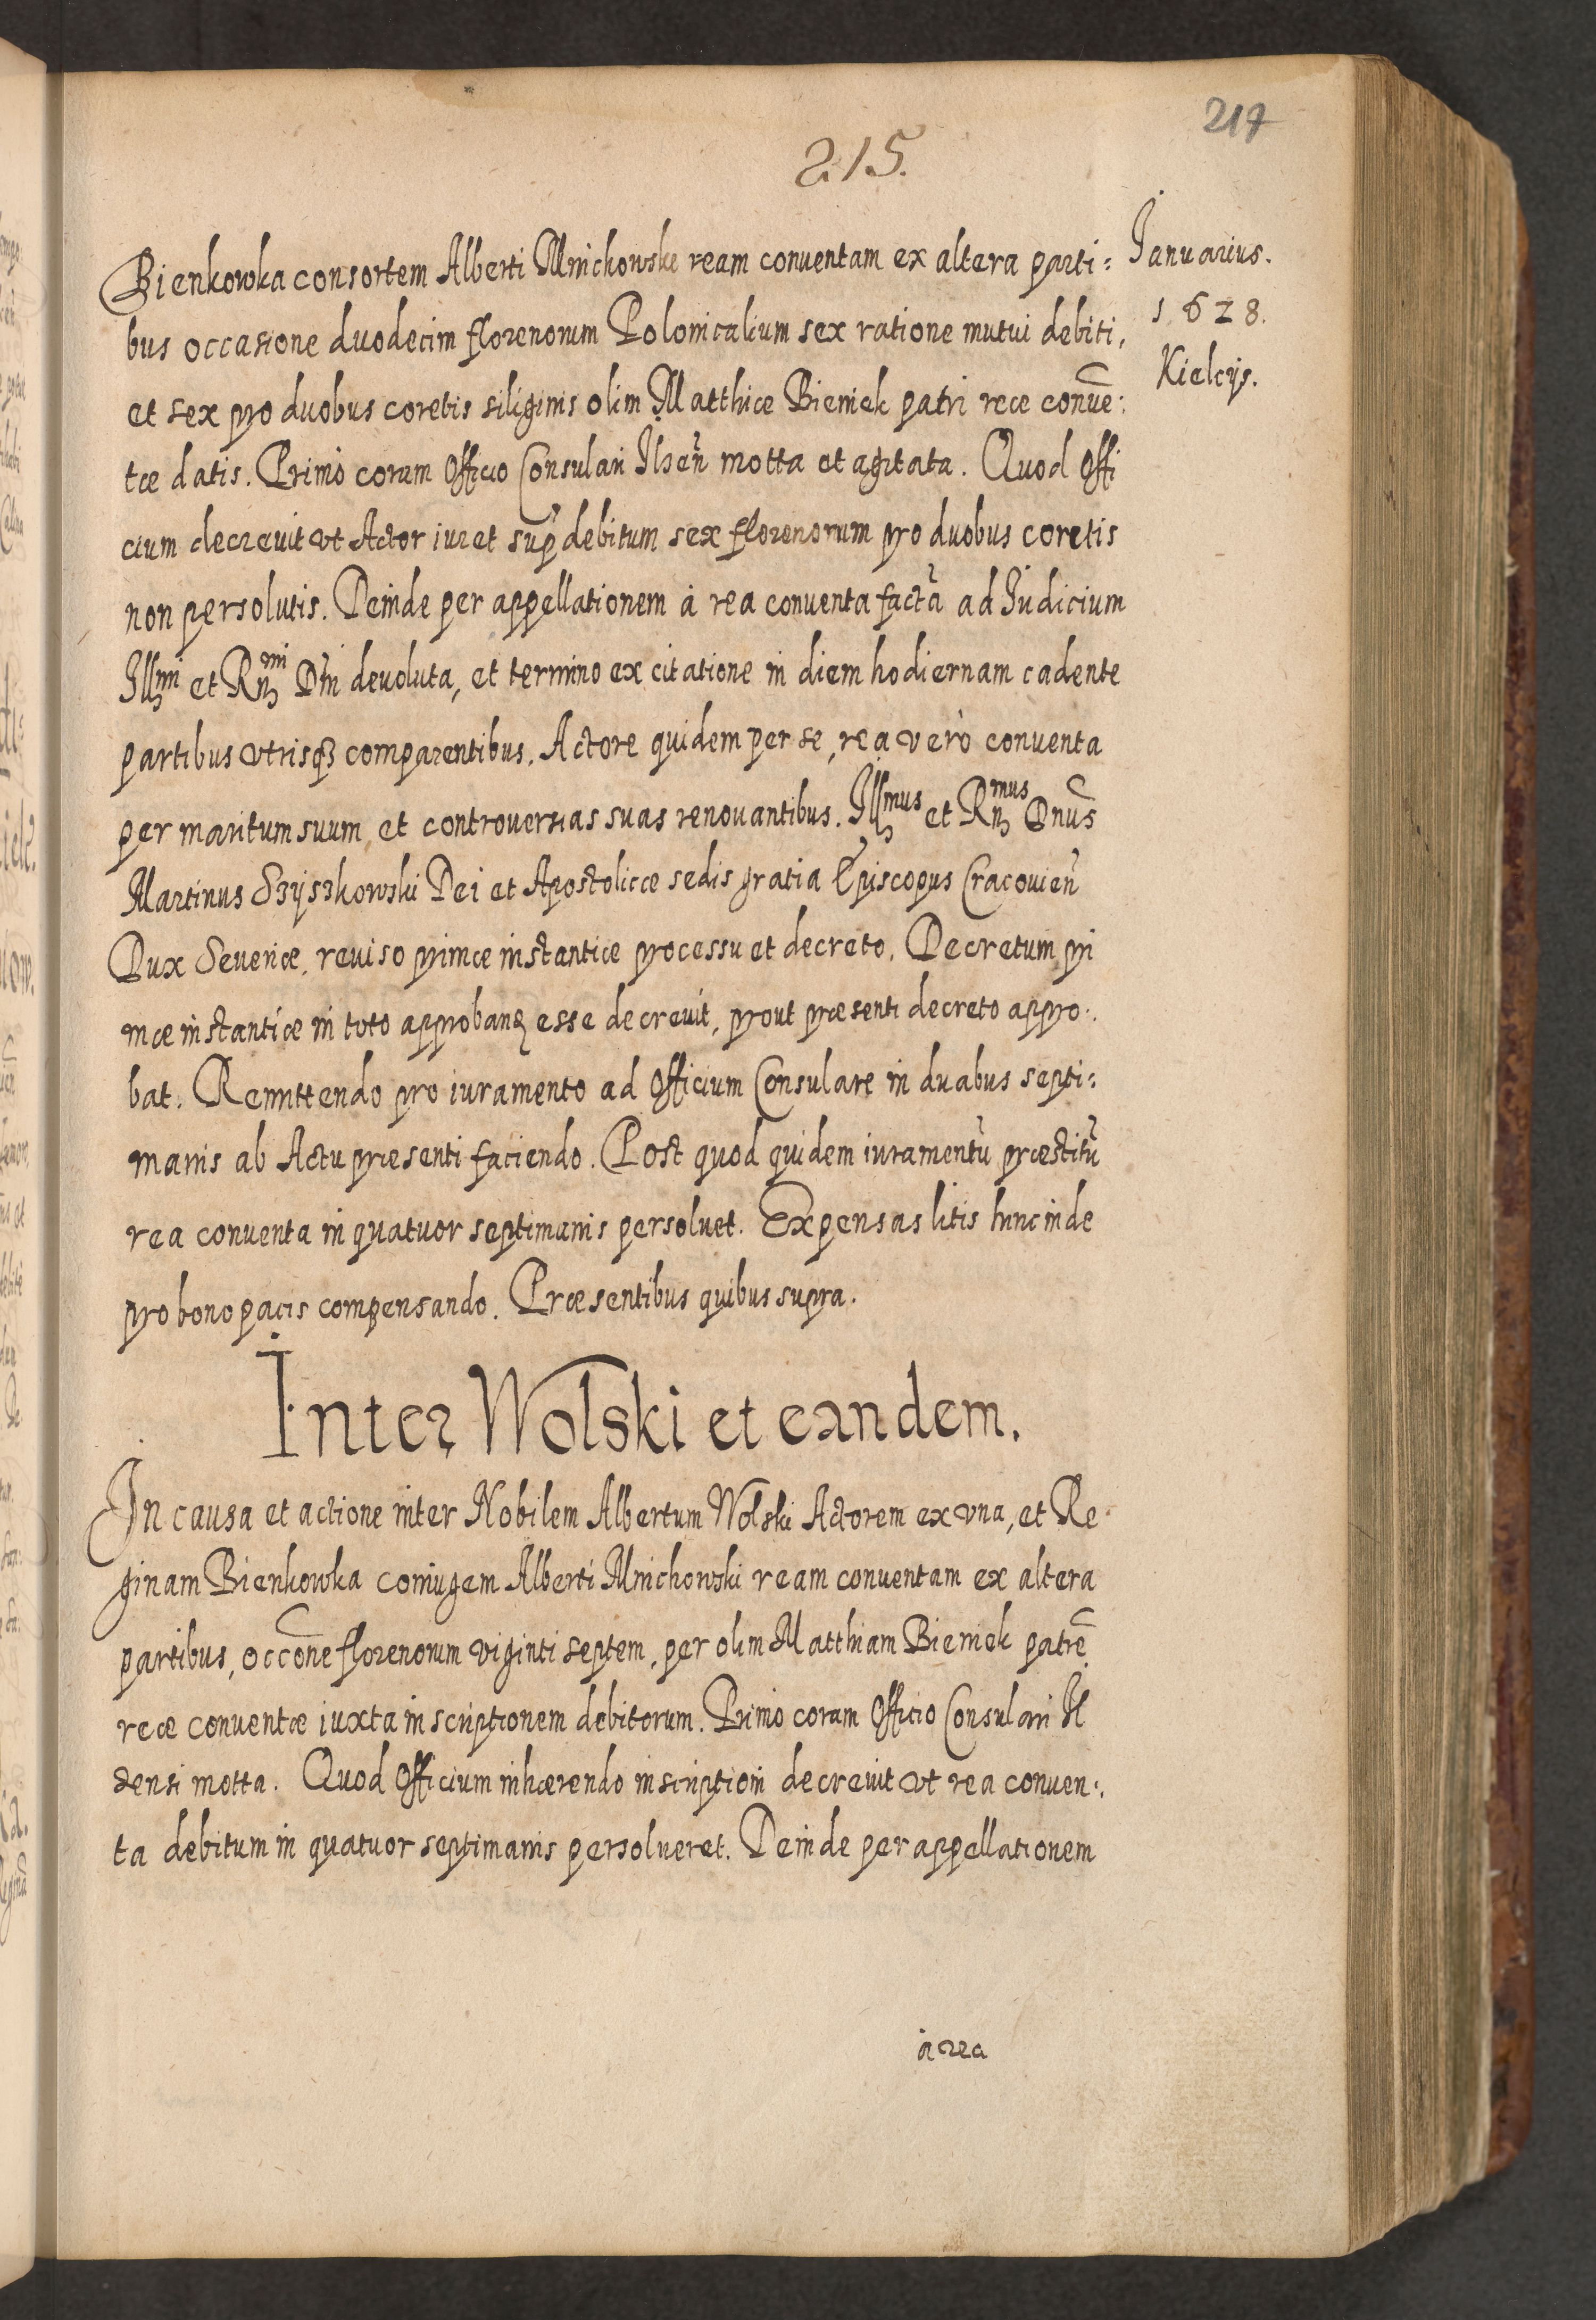 217
215.
Januarius.
1628.
Kielcijs.
Bienkowka consortem Alberti Mnichowski ream conuentam ex altera parti=
bus occasione duodecim florenorum Polonicalium sex ratione mutui debiti,
et sex pro duobus coretis siliginis olim Matthiæ Bieniek patri reæ conuē:
tæ datis. Primo coram Officio Consulari Ilzen̄ motta et agitata. Quod Offi
cium decreuit vt Actor iuret sup debitum sex florenorum pro duobus coretis
non persolutis. Deinde per appellationem à rea conuenta factā ad Iudicium
Illmi et Rmi Dn̄i deuoluta, et termino ex citatione in diem hodiernam cadente
partibus vtrisq3 comparentibus. Actore quidem per se, rea verò conuenta
per maritum suum, et controuersias suas renouantibus. Illmus et Rmus Dnūs
Martinus Szyszkowski Dei et Apostolicæ sedis gratia Episcopus Cracouien̄
Dux Seueriæ, reuiso primæ instantiæ processu et decreto, Decretum pri
mæ instantiæ in toto approbanđ esse decreuit, prout præsenti decreto appro:
bat. Remittendo pro iuramento ad Officium Consulare in duabus septi=
manis ab Actu præsenti faciendo. Post quod quidem iuramentū præstitū
rea conuenta in quatuor septimanis persoluet. Expensas litis hincinde
pro bono pacis compensando. Præsentibus quibus supra.
Inter Wolski et eandem.
In causa et actione inter Nobilem Albertum Wolski Actorem ex vna, et Re
ginam Bienkowka coniugem Alberti Mnichowski ream conuentam ex altera
partibus, occōne florenorum viginti septem, per olim Matthiam Bieniek patrē
reæ conuentæ iuxta inscriptionem debitorum. Primo coram Officio Consulari Il
zensi motta. Quod Officium inhærendo inscriptioni decreuit vt rea conuen:
ta debitum in quatuor septimanis persolueret. Deinde per appellationem
à rea